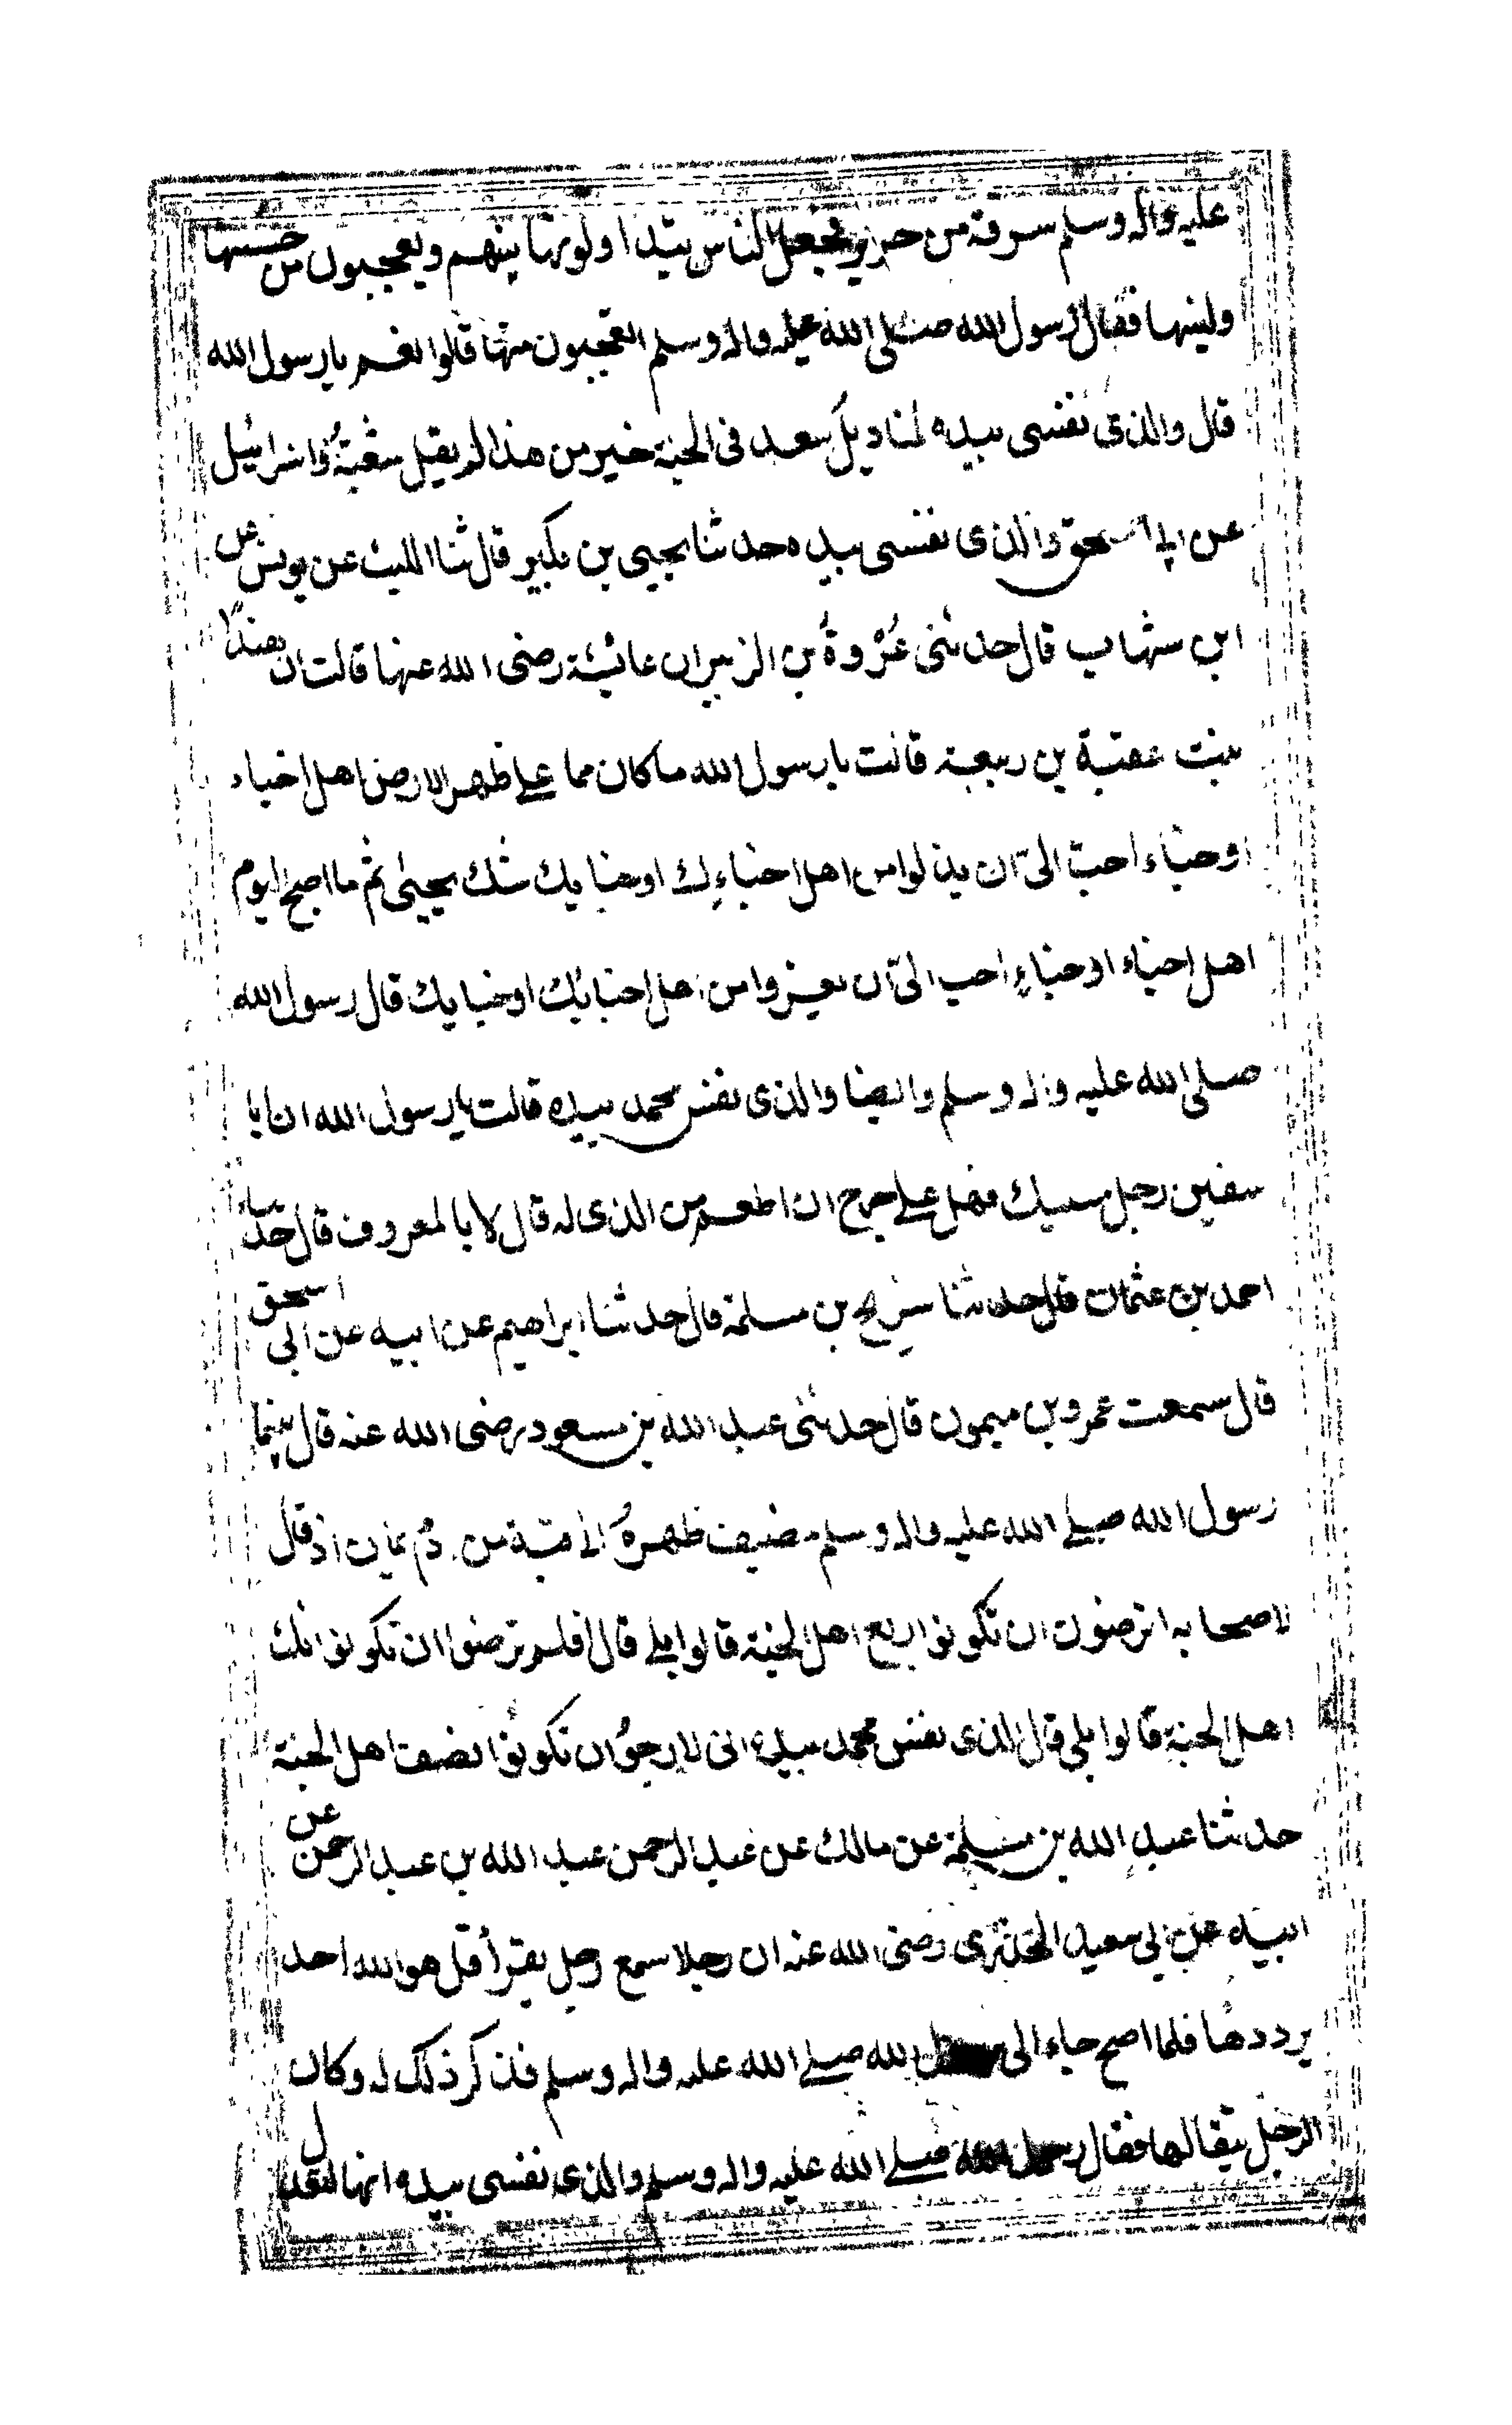 عليه واله وسلم سرقة من حرير فجعل الناس يتداولونها بينهم ويعجبون من حسنها
ولينها فقال رسول الله صلى الله عليه واله وسلم اتعجبون منها قالوا نعم يا رسول الله
قال والذى نفسى بيده لمناديل سعد فى الجنة خير من هذا لم يقل شعبة واسرائيل
عن ابى اسحق والذى نفسى بيده حدثنا يحيى بن بكير قال ثنا الليث عن يونس عن
ابن شهاب قال حدثنى عُرْوةُ بن الزبير ان عائشة رضى الله عنها قالت ان هندا
بنت عقبة بن ربيعة قالت يا رسول الله ما كان مما على ظهر الارض اهل اخباء
او خباء احبّ الىّ ان يذلوا من اهل اخباءك او خبايك شك يحيى ثم ما اصبح اليوم
اهل اخباء او خباء احب الىّ ان يعزوا من اهل اخبائك او خبايك قال رسول الله
صلى الله عليه واله وسلم وايضا والذى نفس محمد بيده قالت يا رسول الله ان ابا
سفين رجل مسيك فهل على حرج ان اطعم من الذى له قال لا بالمعروف قال حدثنا
احمد بن عثمان قال حدثنا شريح بن مسلمة قال حدثنا ابراهيم عن ابيه عن ابى اسحق
قال سمعت عمرو بن ميمون قال حدثنى عبد الله بن مسعود رضى الله عنه قال بينما
رسول الله صلى الله عليه واله وسلم مضيف ظهرهُ الى قبة من ادم يمان اذ قال
لاصحابه اترضون ان تكونوا ربع اهل الجنة قالوا بلى قال افلم ترضوا ان تكونوا ثلث
اهل الجنة قالوا بلى قال الذى نفس محمد بيده انى لارجوا ان تكونوا نصف اهل الجنة
حدثنا عبد الله بن مسلمة عن مالك عن عبد الرحمن عبد الله بن عبد الرحمن عن
ابيه عن ابى سعيد الخدرى رضى الله عنه ان رجلا سمع رجل يقرأ قل هو الله احد
يرددها فلما اصبح جاء الى رسول الله صلى الله عليه واله وسلم فذكر ذلك له وكان
الرجل يتقالها فقال رسول الله صلى الله عليه واله وسلم والذى نفسى بيده انها لتعدل